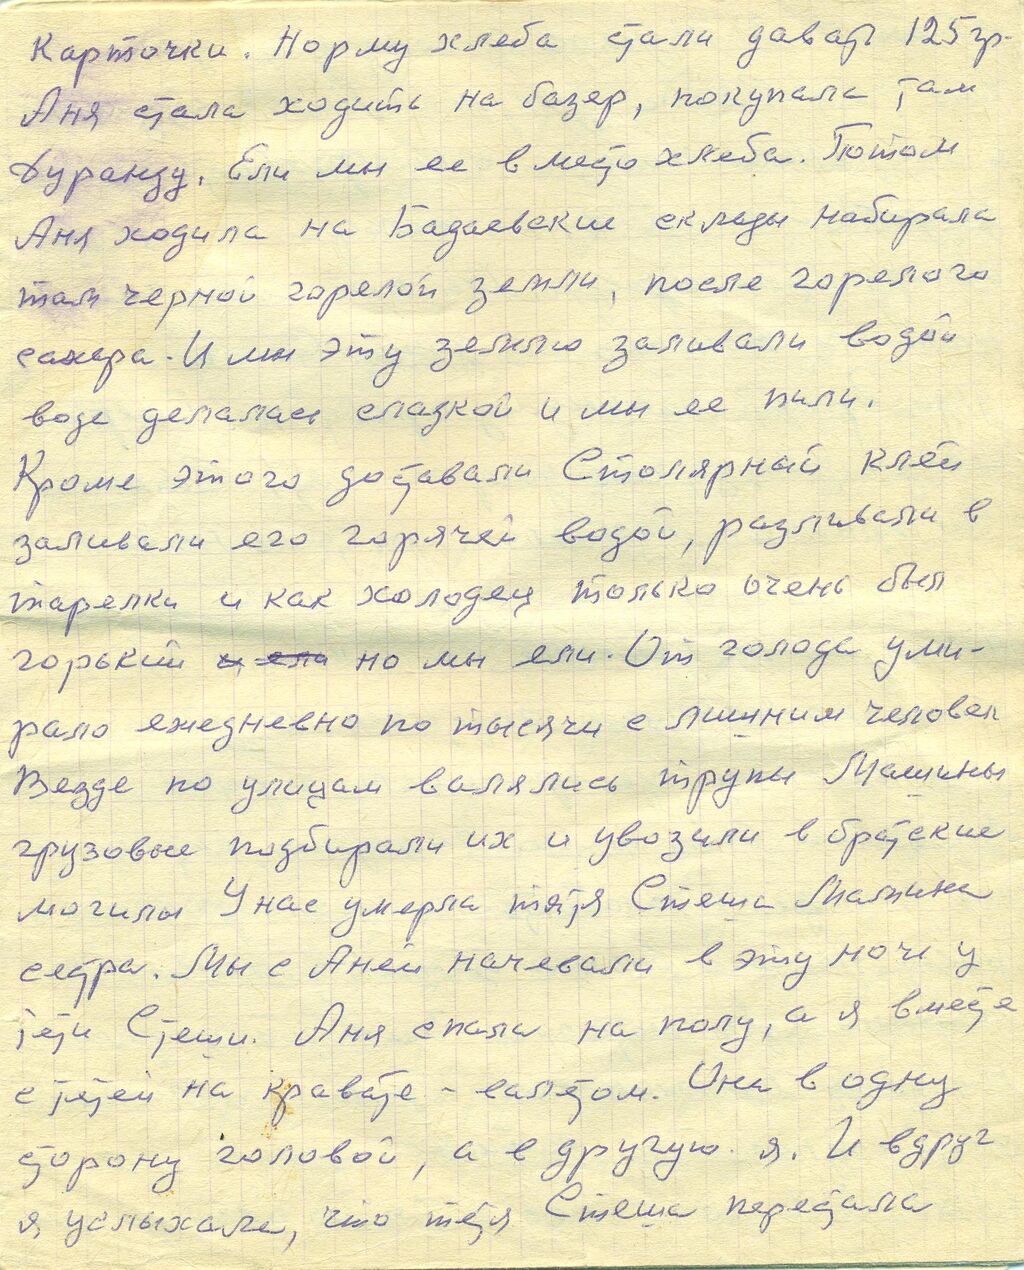 Карточки. Норму хлеба стали давать 125 гр.
Аня стала ходить на базар, покупала там
дуранду. Ели мы ее вместо хлеба. Потом
Аня ходила на Бадаевские склады набирала
там черной горелой земли, после горелого
сахара. И мы эту землю заливали водой
вода делалась сладкой и мы ее пили.
Кроме этого доставали Столярный клей
заливали его горячей водой, разливали в
тарелки и как холодец только очень был
горький и ели но мы ели. От голода уми-
рало ежедневно по тысячи с лишним человек
Везде по улицам валялись трупы Машины
грузовые подбирали их и увозили в братские
могилы У нас умерла тётя Стеша Мамина
сестра. Мы с Аней начевали в эту ночь у
тёти Стеши. Аня спала на полу, а я вместе
с тётей на кровате - валетом. Она в одну
сторону головой, а в другую я. И вдруг
я услыхала, что тётя Стеша перестала